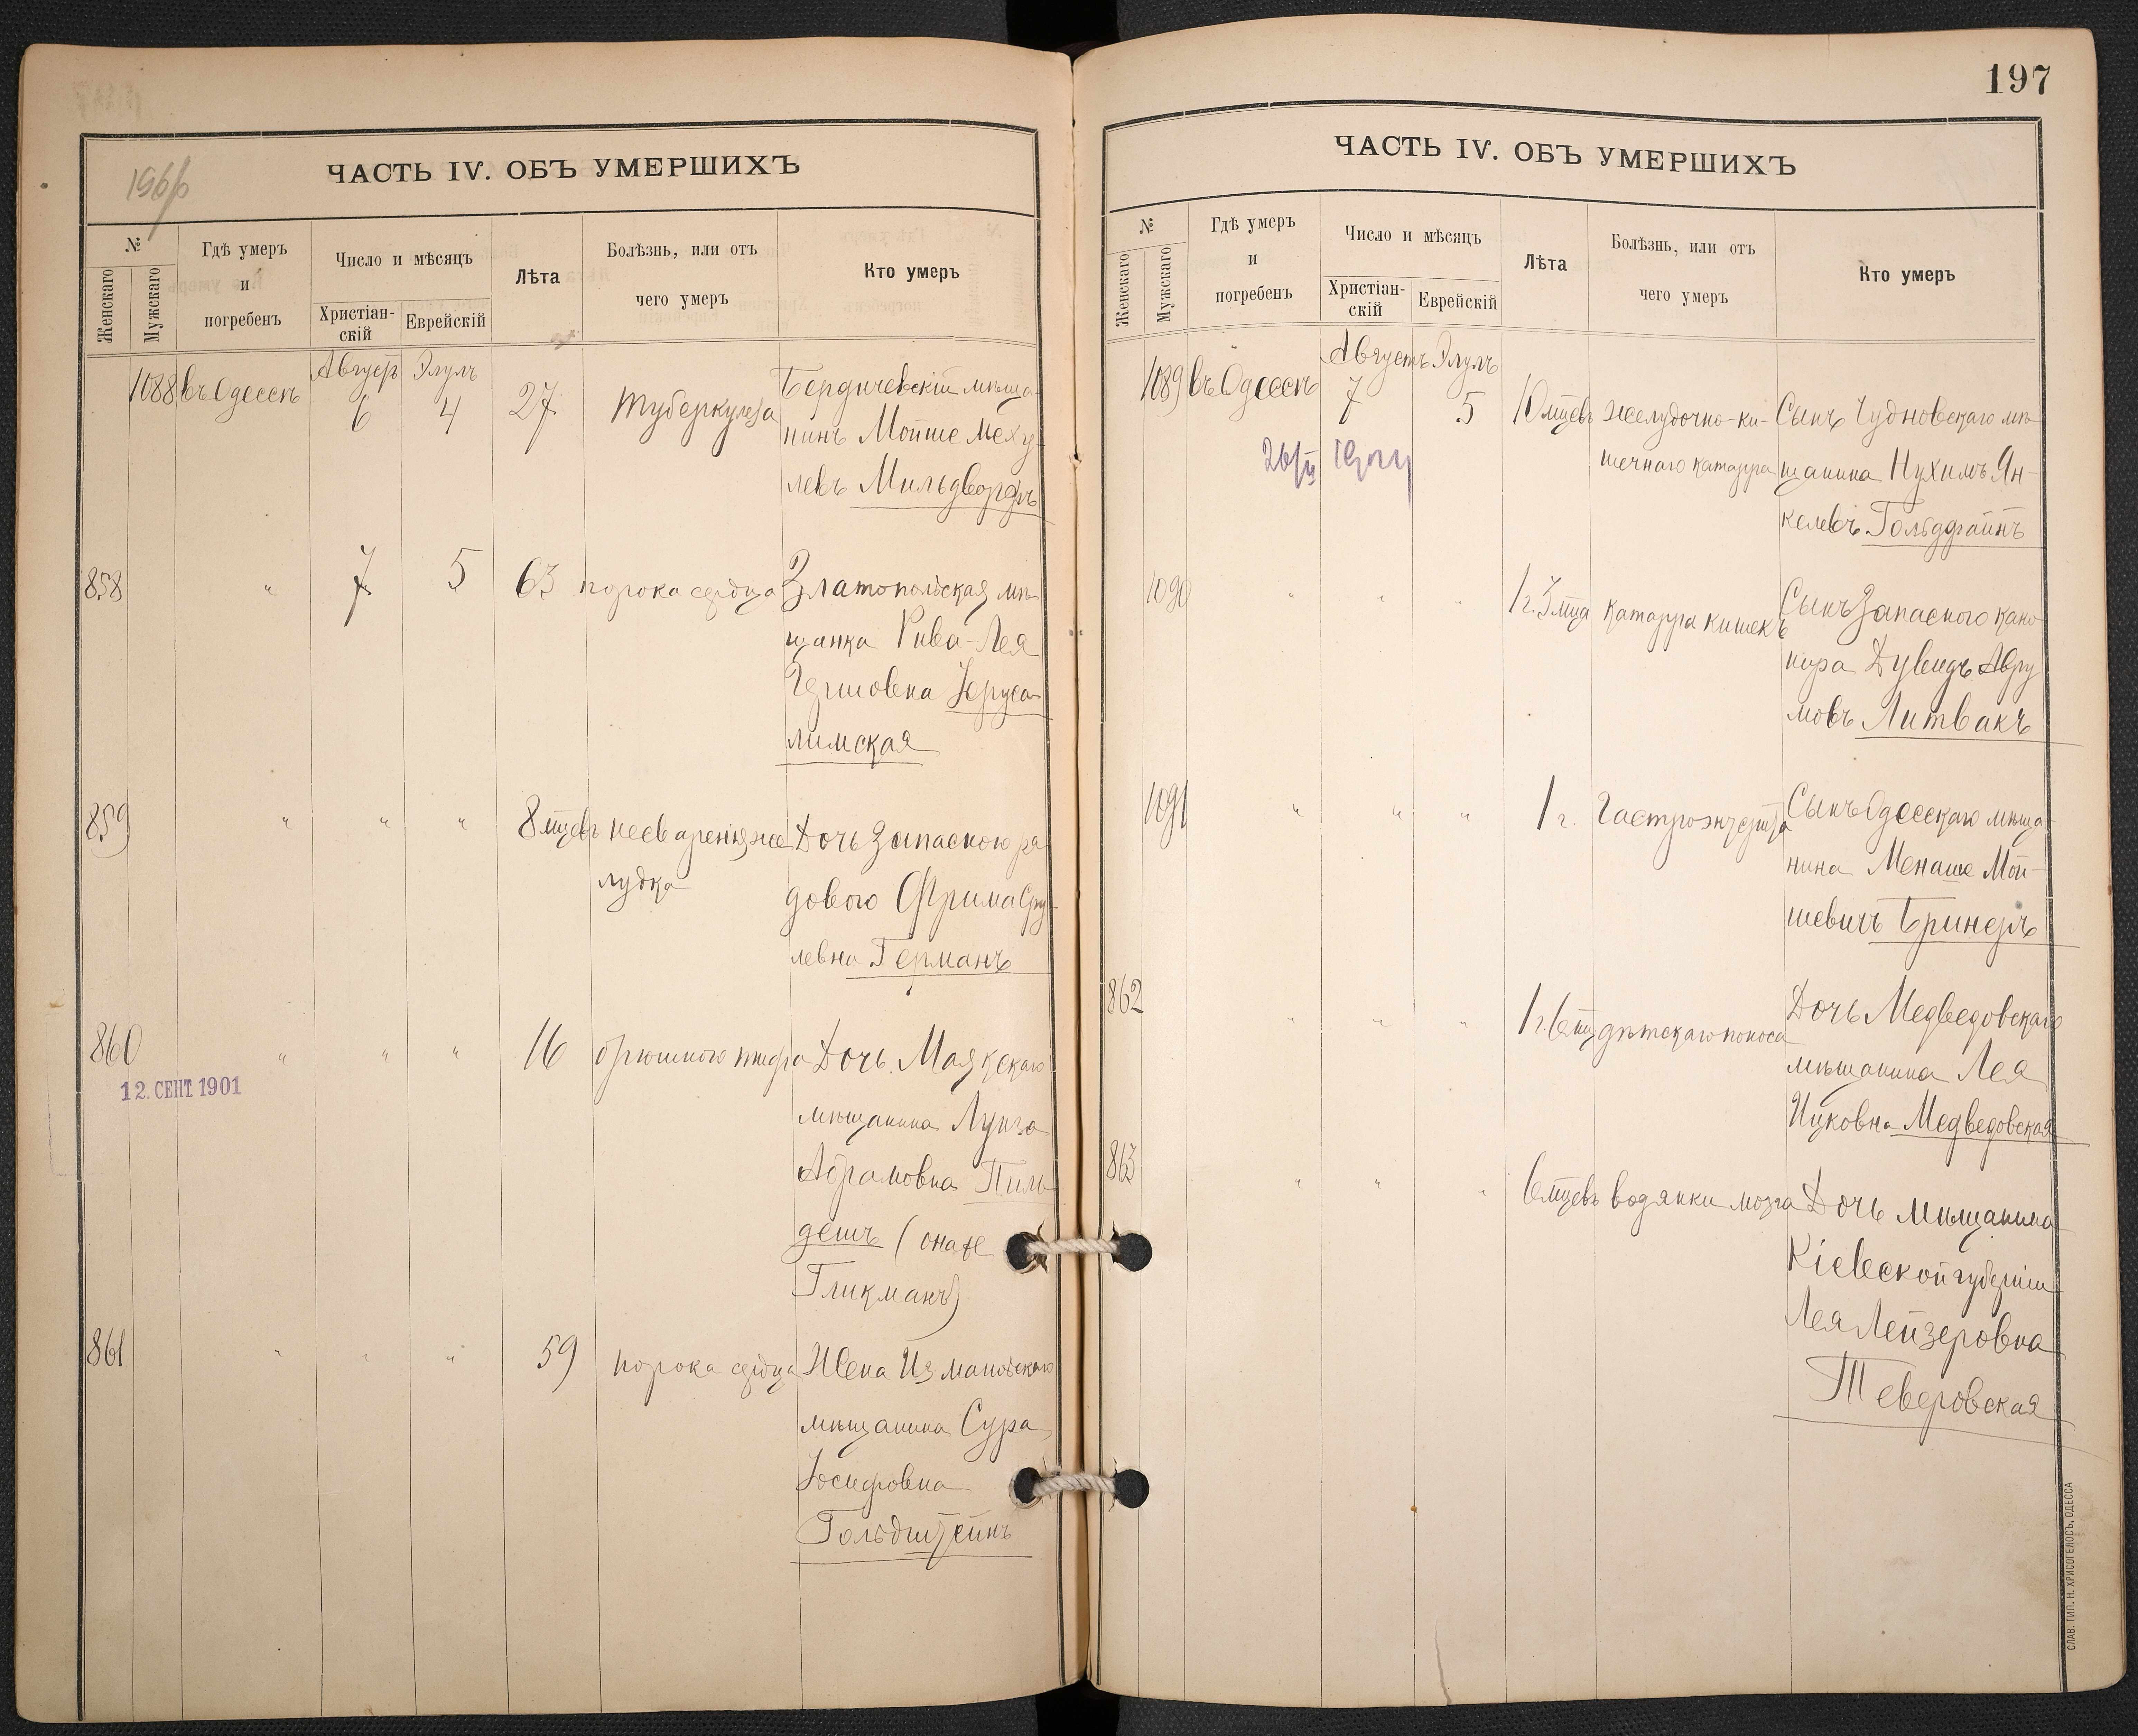 196/б
ЧАСТЬ IV. ОБЪ УМЕРШИХЪ
№
Женскаго
Мужскаго
Гдѣ умеръ
и
погребенъ
Число и мѣсяцъ
Христіан-
скій
Еврейскій
Лѣта
Болѣзнь, или отъ
чего умеръ
Кто умеръ
Августъ Элулъ
1088 въ Одессѣ 6 4 27 туберкулеза Бердичевскій мѣща-
нинъ Мойше Меху-
левъ Мильдворфъ
858 " 7 5 63 порока сердца Златопольская мѣ-
щанка Рива-Лея
Гершовна Іеруса-
лимская
859 " " " 8 мцевъ несваренія же- Дочь запасного ря-
лудка
дового Фрима Сру-
левна Германъ
860 " " " 16 брюшного тифа Дочь Маякскаго
12. СЕНТ. 1901
мѣщанина Луиза
Абрамовна Пиль-
дешъ (она же
Гликманъ)
861 " " " 59 порока сердца Жена Измаильскаго
мѣщанина Сура
Іосифовна
Гольдштейнъ
197
ЧАСТЬ IV. ОБЪ УМЕРШИХЪ
№
Женскаго
Мужскаго
Гдѣ умеръ
и
погребенъ
Число и мѣсяцъ
Христіан-
скій
Еврейскій
Лѣта
Болѣзнь, или отъ
чего умеръ
Кто умеръ
Августъ Элулъ
1089 въ Одессѣ 7 5 10 мцевъ желудочно-ки- Сынъ Чудновскаго мѣ-
шечнаго катарра щанина Нухимъ Ян-
келевъ Гольдфайнъ
1090 " " " 1 г. 3 мца катарра кишекъ Сынъ запасного кано-
нира Дувидъ Авру-
мовъ Литвакъ
1091 " " " 1 г. Гастроэнтерита Сынъ Одесскаго мѣща-
нина Менаше Мой-
шевичъ Бринеръ
862 " " " 1 г. 6 мц дѣтскаго поноса Дочь Медведовскаго
мѣщанина Лея
Ицковна Медведовская
863 " " " 6 мцевъ водянки мозга Дочь мѣщанина
Кіевской губерніи
Лея Лейзеровна
Теверовская
СЛАВ. ТИП. Н. ХРИСОГЕЛОСЪ, ОДЕССА